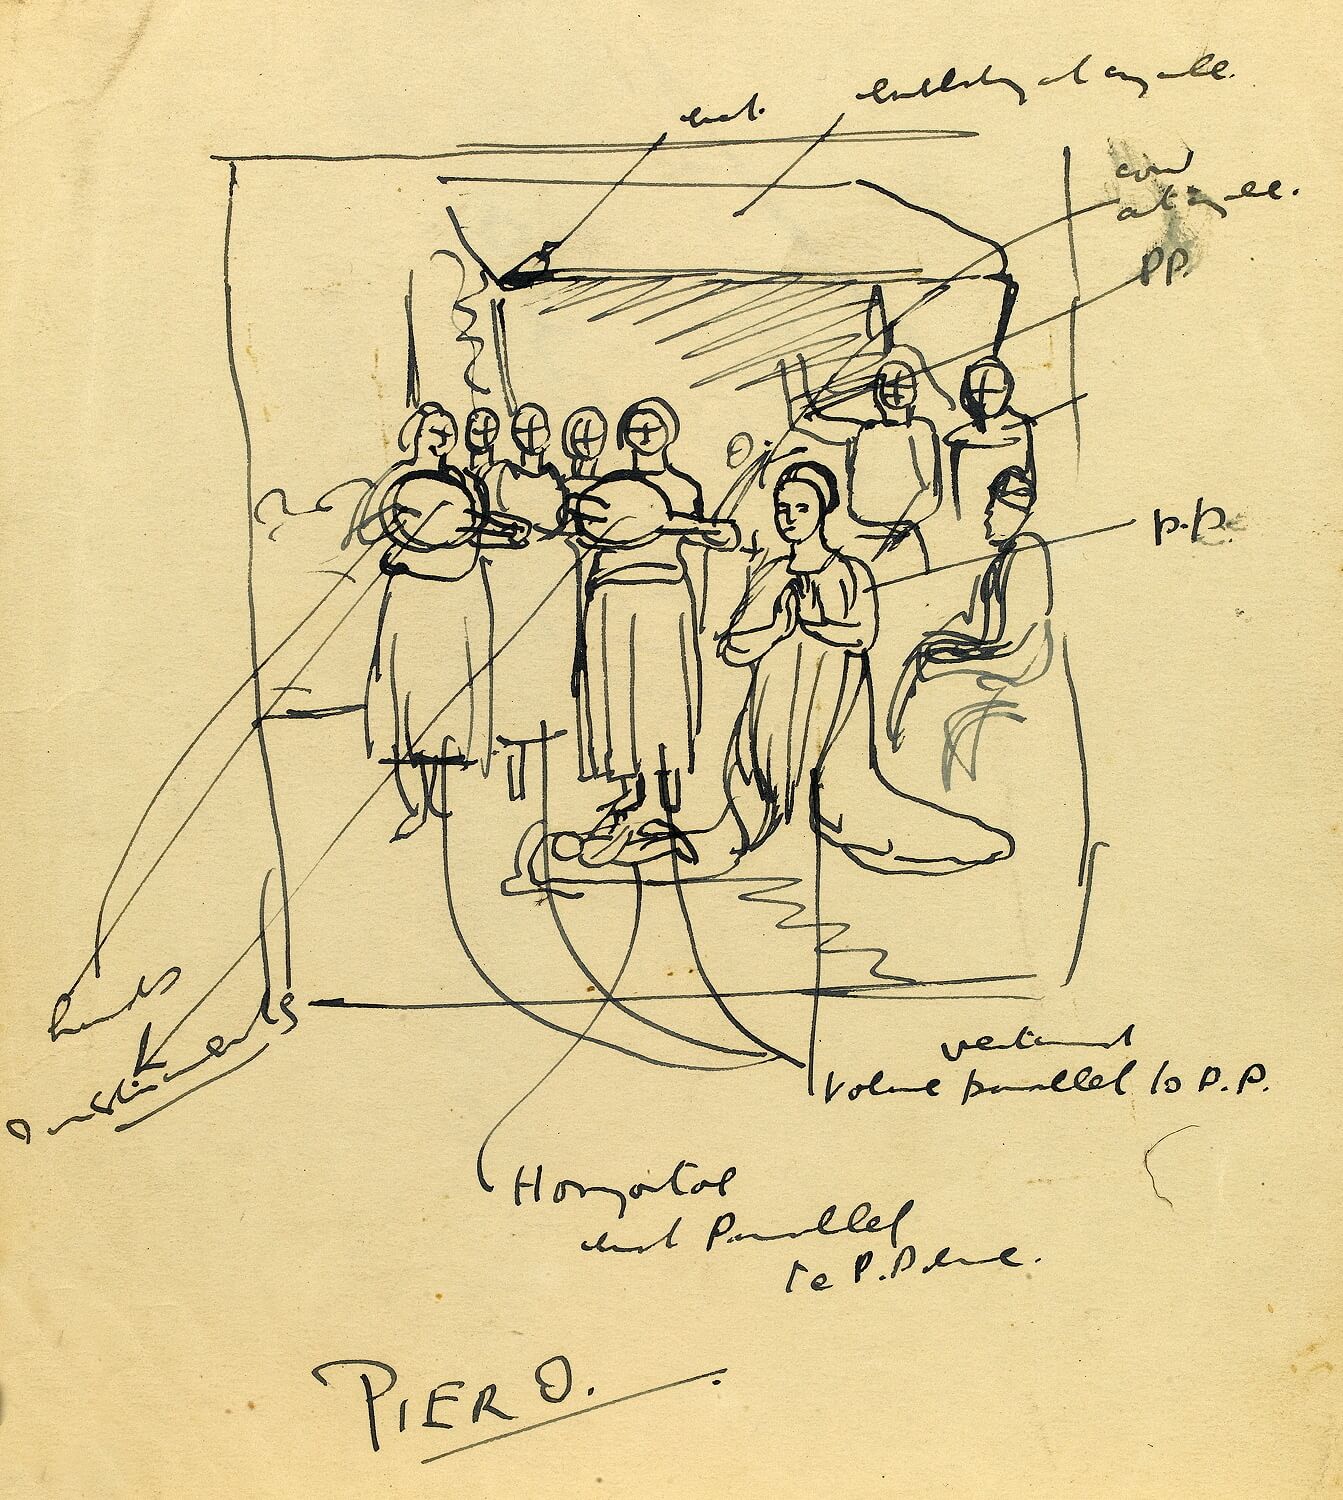 building at angle.
cow
at angle.
PP.
P.P.
hands
Instruments
vertical
Volume parallel to P.P.
Horizontal
but Parallel
to P. Plane.
PIERO.